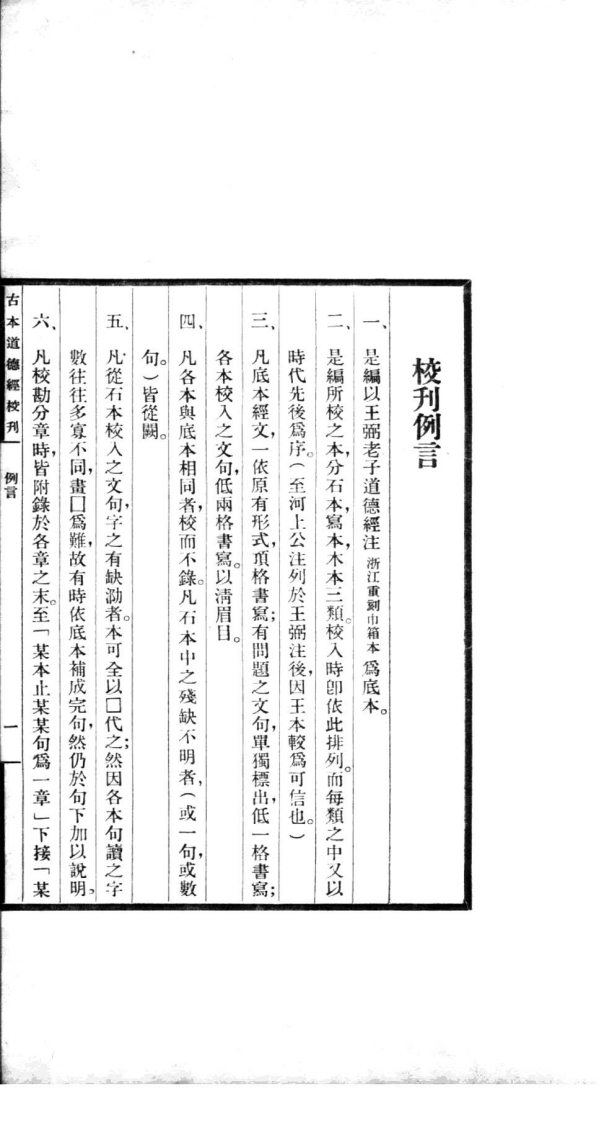 校刊例言
一、是編以王弼老子道德經注浙江重刻巾箱本爲底本。
二、是編所校之本，分石本，寫本，木本三類。校入時卽依此排列。而每類之中又以
時代先後爲序。（至河上公注列於王弼注後，因王本較爲可信也。）
三、凡底本經文，一依原有形式，項格書寫；有問題之文句，單獨標出，低一格書寫；
各本校入之文句，低兩格書寫。以淸眉目。
四、凡各本與底本相同者，校而不錄。凡石本中之殘缺不明者，（或一句，或數
句。）皆從闕。
五、凡從石本校入之文句，字之有缺泐者。本可全以囗代之；然因各本句讀之字
數往往多寡不同，畫囗爲難，故有時依底本補成完句，然仍於句下加以說明。
六、凡校勘分章時，皆附錄於各章之末。至「某本止某某句爲一章」下接「某
古本道德經校刊
例言
一